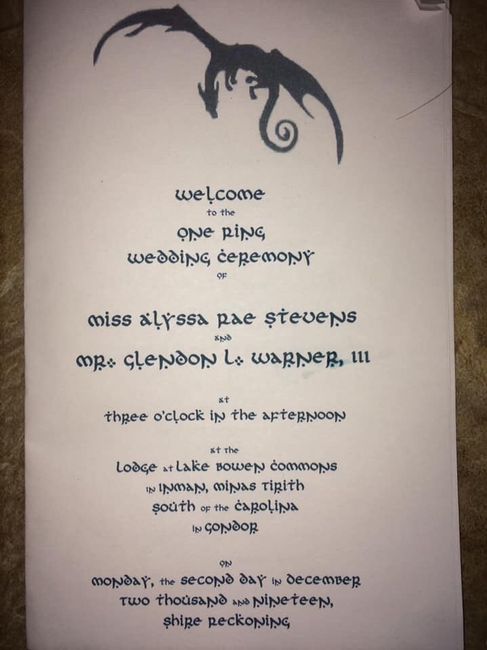 Welcome
to the
One Ring
Wedding Ceremony
of
Miss Alyssa Rae Stevens
and
Mr. Glendon L. Warner, III
at
three o'clock in the afternoon
at the
Lodge at Lake Bowen Commons
in Inman, Minas Tirith
South of the Carolina
in Gondor
on
Monday, the second day in December
Two thousand and nineteen,
Shire Reckoning